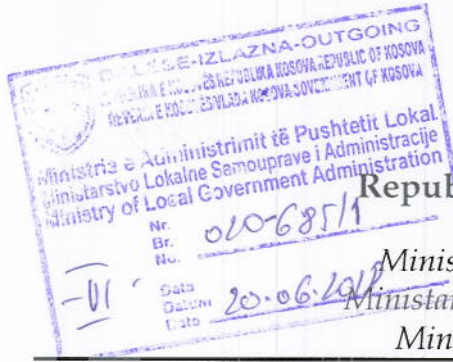 DALËSE-IZLAZNA-OUTGOING
REPUBLIKA KOSOVA REPUBLIC OF KOSOVA
VLADA KOSOVA GOVERNMENT OF KOSOVA
Ministria e Administrimit të Pushtetit Lokal
Ministarstvo Lokalne Samouprave i Administracije
Ministry of Local Government Administration
Repub
Nr.
Br.
No. 020-685/1
Minis
-01
Data
Datum
Date 20.06.2012
Ministar
Min